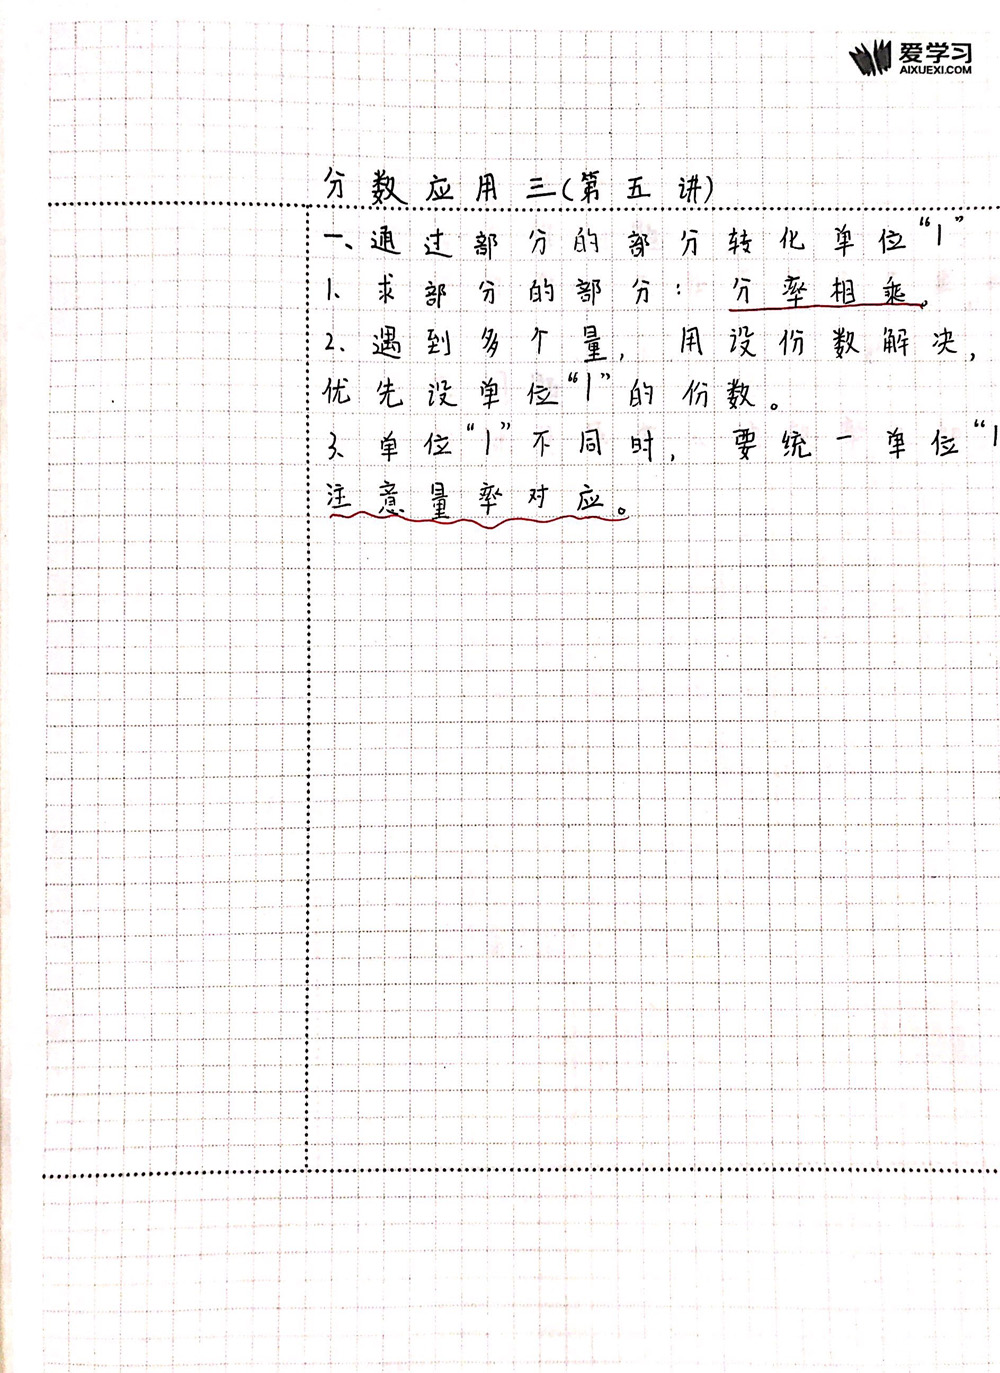 爱学习
AIXUEXI.COM
分数应用三(第五讲)
一、通过部分的部分转化单位“1”
1、求部分的部分：分率相乘。
2、遇到多个量，用设份数解决，
优先设单位“1”的份数。
3、单位“1”不同时，要统一单位“1
注意量率对应。